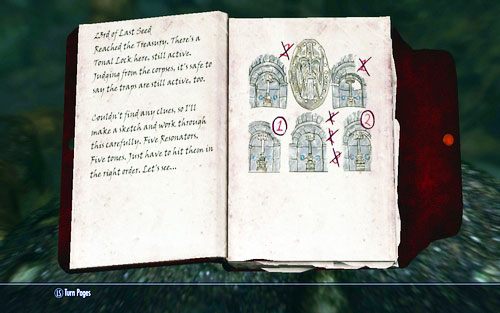 23rd of Last Seed
Reached the Treasury. There's a
Tonal Lock here, still active.
Judging from the corpses, it's safe to
say the traps are still active, too.
Couldn't find any clues, so I'll
make a sketch and work through
this carefully. Five Resonators,
Five tones. Just have to hit them in
the right order. Let's see...
1
2
LS Turn Pages